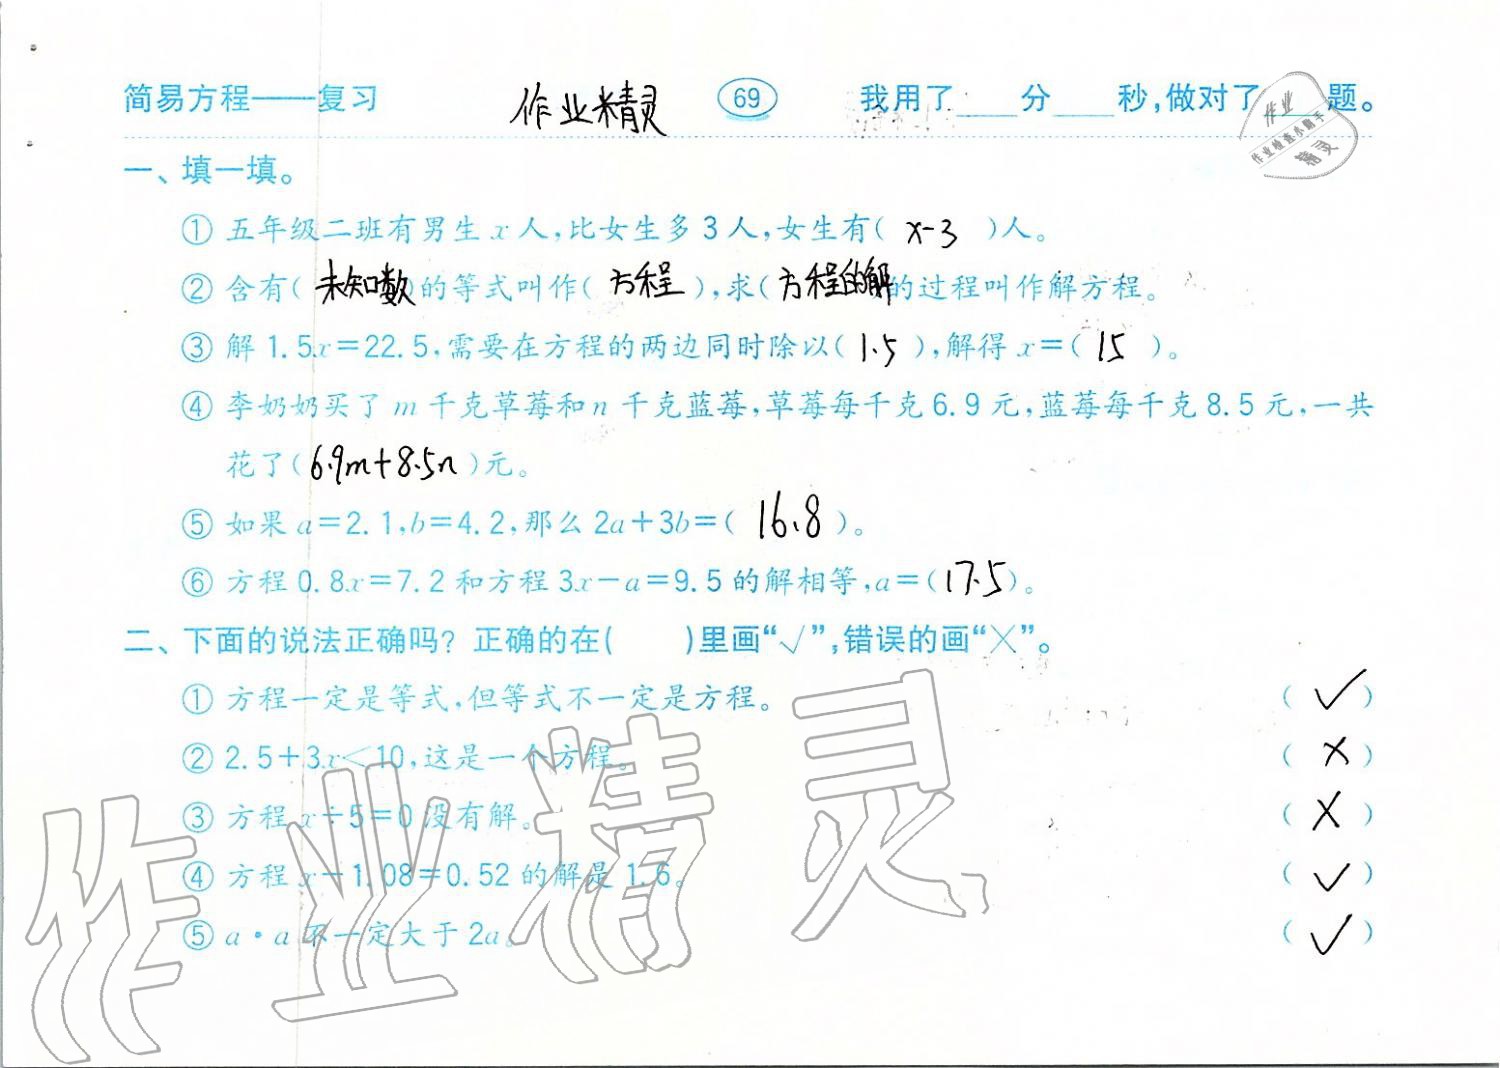 简易方程——复习 作业精灵 69 我用了____分____秒,做对了____题。
作业
作业检查小助手
精灵
一、填一填。
① 五年级二班有男生 x 人,比女生多 3 人,女生有( x-3 )人。
② 含有( 未知数 )的等式叫作( 方程 ),求( 方程的解 )的过程叫作解方程。
③ 解 1.5x=22.5,需要在方程的两边同时除以( 1.5 ),解得 x=( 15 )。
④ 李奶奶买了 m 千克草莓和 n 千克蓝莓,草莓每千克 6.9 元,蓝莓每千克 8.5 元,一共
花了( 6.9m+8.5n )元。
⑤ 如果 a=2.1,b=4.2,那么 2a+3b=( 16.8 )。
⑥ 方程 0.8x=7.2 和方程 3x-a=9.5 的解相等,a=( 17.5 )。
二、下面的说法正确吗? 正确的在( )里画“√”,错误的画“×”。
① 方程一定是等式,但等式不一定是方程。 ( √ )
② 2.5+3x<10,这是一个方程。 ( × )
③ 方程 x÷5=0 没有解。 ( × )
④ 方程 x-1.08=0.52 的解是 1.6。 ( √ )
⑤ a·a 不一定大于 2a。 ( √ )
作业精灵